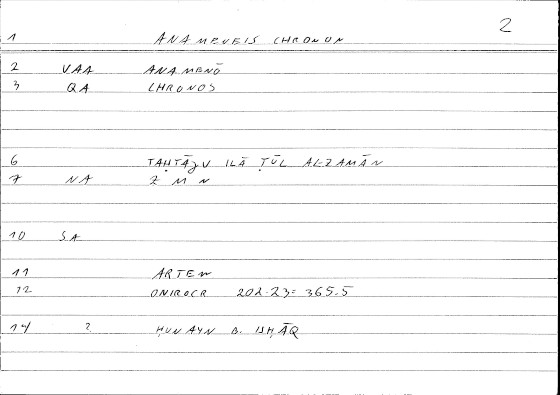 2
1 ANAMENEIS CHRONON
2 VAA ANAMENŌ
3 QA CHRONOS
6 TAḤTĀǦU ILĀ ṬŪL AL-ZAMĀN
7 NA Z M N
10 SA
11 ARTEM
12 ONIROCR 202.23 = 365.5
14 ? ḤUNAYN B. ISḤĀQ